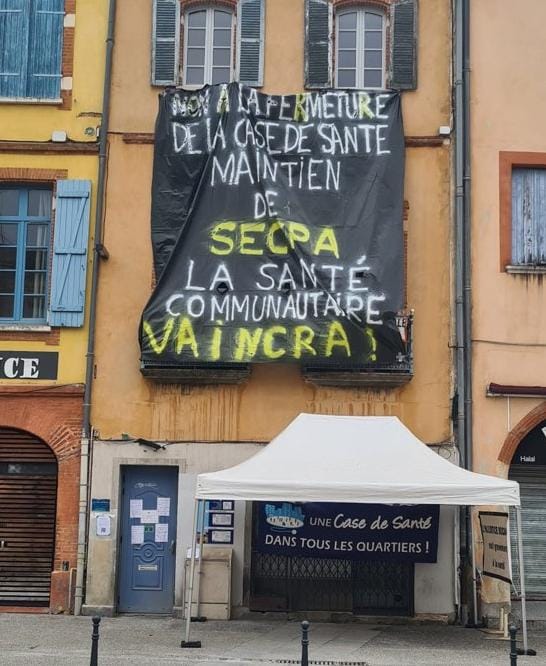 NON À LA FERMETURE
DE LA CASE DE SANTE
MAINTIEN
DE
SECPA
LA SANTÉ
COMMUNAUTAIRE
VAINCRA !
CE
Halal
UNE Case de Santé
DANS TOUS LES QUARTIERS !
à la santé